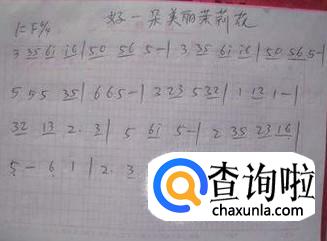 好一朵美丽茉莉花
1=F 2/4
3 35 61 16 | 50 56 5- | 3 35 61 16 | 50 56 5- |
5 5 5 35 | 6 6 5- | 3 23 5 32 | 1 12 1- |
32 13 2· 3 | 5 61 5- | 2 35 23 16 |
5 - 6 1 | 2· 3
查询啦
chaxunla.com